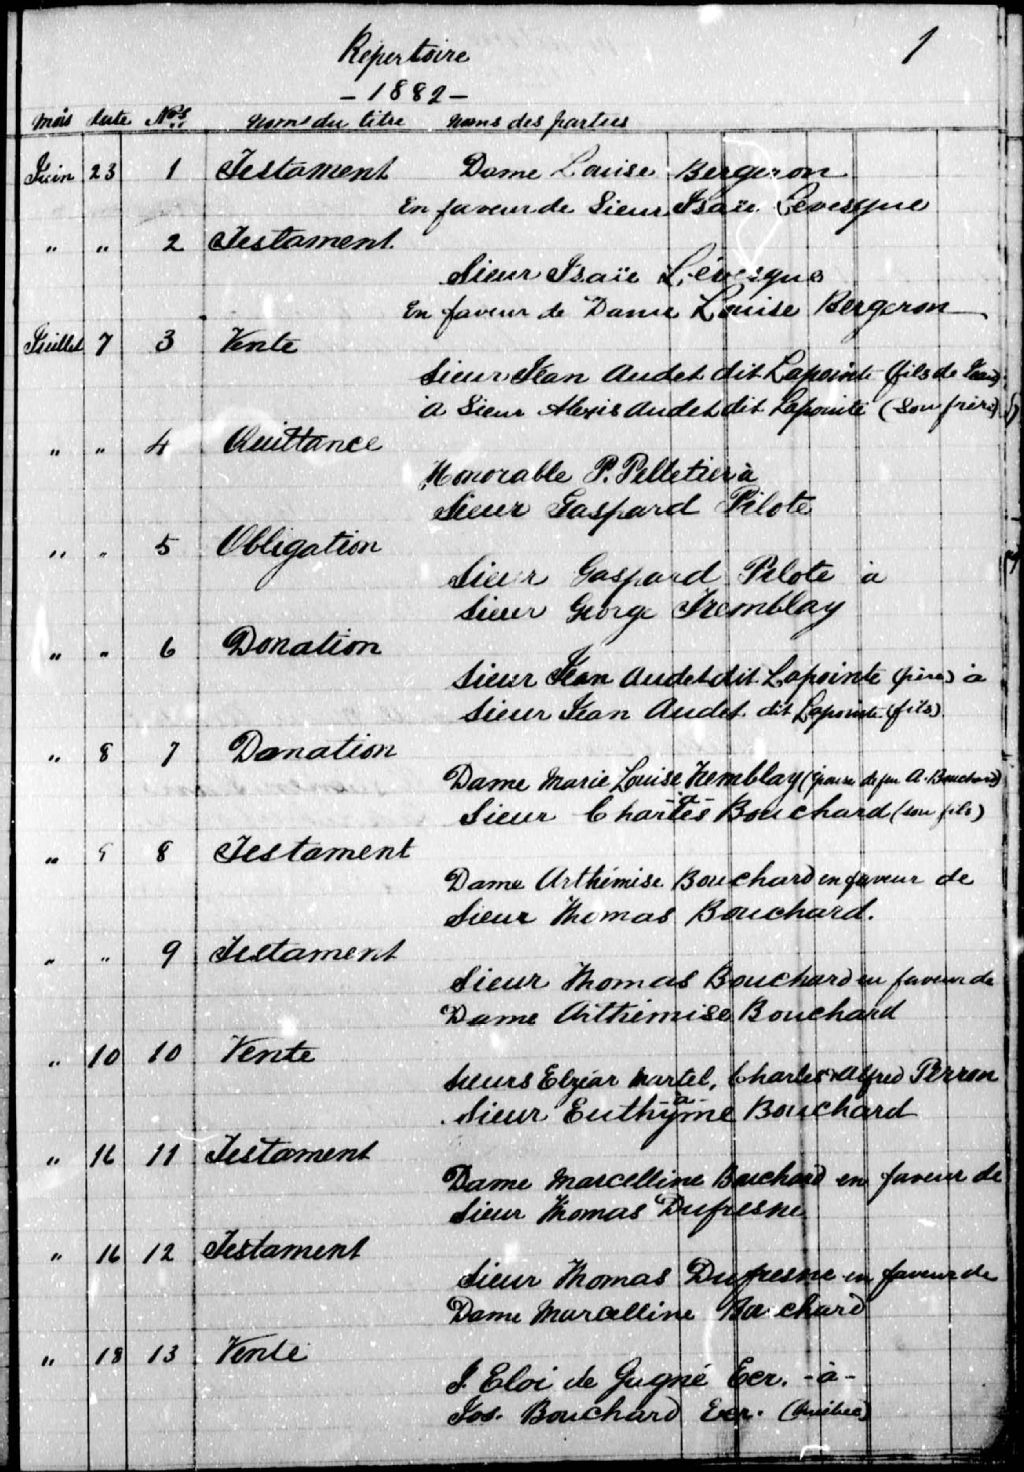 Répertoire
1
- 1882 -
Mois date Nos Noms du titre Noms des parties
Juin 23 1 Testament Dame Louise Bergeron
En faveur de Sieur Isaïe Lévesque
" " 2 Testament
Sieur Isaïe Lévesque
En faveur de Dame Louise Bergeron
Juillet 7 3 Vente
Sieur Jean Audet dit Lapointe (fils de Jean)
à Sieur Alexis Audet dit Lapointe (son frère)
" " 4 Quittance
Honorable P. Pelletier à
Sieur Gaspard Pilote
" " 5 Obligation
Sieur Gaspard Pilote à
Sieur George Tremblay
" " 6 Donation
Sieur Jean Audet dit Lapointe (père) à
Sieur Jean Audet dit Lapointe (fils)
" 8 7 Donation
Dame Marie Louise Tremblay (épouse de feu A. Bouchard)
- à -
Sieur Charles Bouchard (son fils)
" 9 8 Testament
Dame Arthémise Bouchard en faveur de
Sieur Thomas Bouchard.
" " 9 Testament
Sieur Thomas Bouchard en faveur de
Dame Arthémise Bouchard
" 10 10 Vente
Sieurs Elzéar Martel, Charles Alfred Perron
- à -
Sieur Euthyme Bouchard
" 16 11 Testament
Dame Marcelline Bouchard en faveur de
Sieur Thomas Dufresne
" 16 12 Testament
Sieur Thomas Dufresne en faveur de
Dame Marcelline Bouchard
" 18 13 Vente
J. Eloi de Gugné Ecr. - à -
Jos. Bouchard Ecr. (Québec)